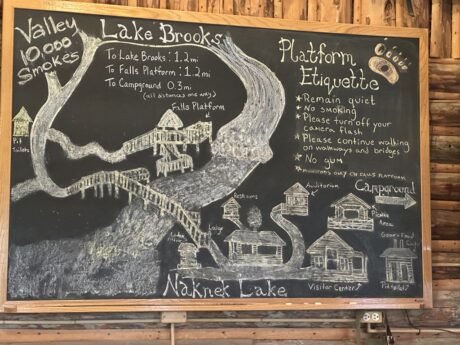 Valley
10,000
Smokes
Lake Brooks
To Lake Brooks: 1.2 mi
To Falls Platform: 1.2 mi
To Campground 0.3 mi
(all distances one way)
Falls Platform
Pit
Toilets
Platform
Etiquette
Remain quiet
No smoking
Please turn off your
camera flash
Please continue walking
on walkways and bridges
No gum
Campground
Auditorium
Restrooms
Lodge
Picnic
Area
Visitor Center
Naknek Lake